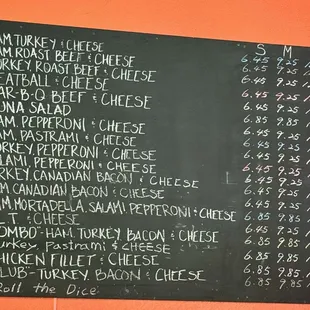 S M
AM.TURKEY & CHEESE 6.45 9.25
AM.ROAST BEEF & CHEESE 6.45 9.25
URKEY ROAST BEEF & CHEESE 6.45 9.25
EATBALL & CHEESE 6.45 9.25
AR-B-Q BEEF & CHEESE 6.45 9.25
UNA SALAD 6.85 9.85
AM. PEPPERONI & CHEESE 6.45 9.25
AM. PASTRAMI & CHEESE 6.45 9.25
URKEY. PEPPERONI & CHEESE 6.45 9.25
ALAMI. PEPPERONI & CHEESE 6.45 9.25
RKEY.CANADIAN BACON & CHEESE 6.45 9.25
M CANADIAN BACON & CHEESE 6.45 9.25
M.MORTADELLA.SALAMI PEPPERONI & CHEESE 6.45 9.25
LT & CHEESE 6.85
OMBO-HAM.TURKEY BACON & CHEESE 6.45 9.25
urkey. Pastrami & CHEESE 6.85 9.85
HICKEN FILLET & CHEESE 6.85 9.85
LUB-TURKEY. BACON & CHEESE 6.85 9.85
Roll the Dice 6.45 9.25